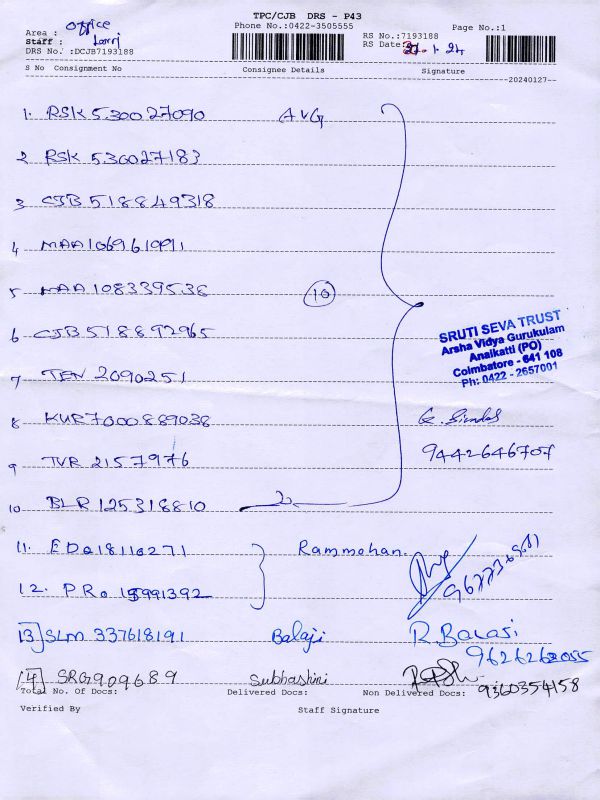 TPC/CJB DRS - P43
Phone No.:0422-3505555
Page No.:1
Area : Office
Staff : Lorri
RS No.:7193188
RS Date: 27.1.24
DRS No. :DCJB7193188
S No Consignment No Consignee Details Signature
20240127
1. RSK 530027090 AVG
2 RSK 536027183
3 CJB 518849318
4 MAA 1069610991
5 MAA 108339536 (10)
6 CJB 518892965
SRUTI SEVA TRUST
Arsha Vidya Gurukulam
Anaikatti (PO)
Coimbatore - 641 108
Ph: 0422 - 2657001
7 TEN 2090251
8 KUR 7000889038
9 TVR 2157976 9442646707
10 BLR 125318810
11. EDQ18110271 Rammohan.
12. PRO 15991392
13] SLM 337618191 Balaji R. Balaji
9626262055
14] SRG909689 Subhashini 9360354158
Total No. Of Docs: Delivered Docs: Non Delivered Docs:
Verified By Staff Signature